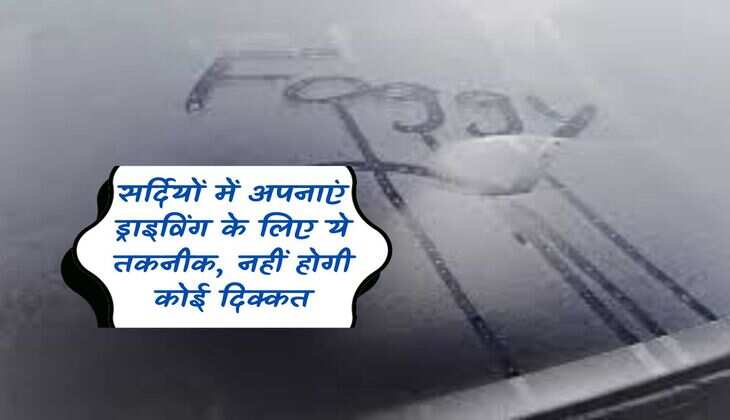 Foggy
सर्दियों में अपनाएं
ड्राइविंग के लिए ये
तकनीक, नहीं होगी
कोई दिक्कत